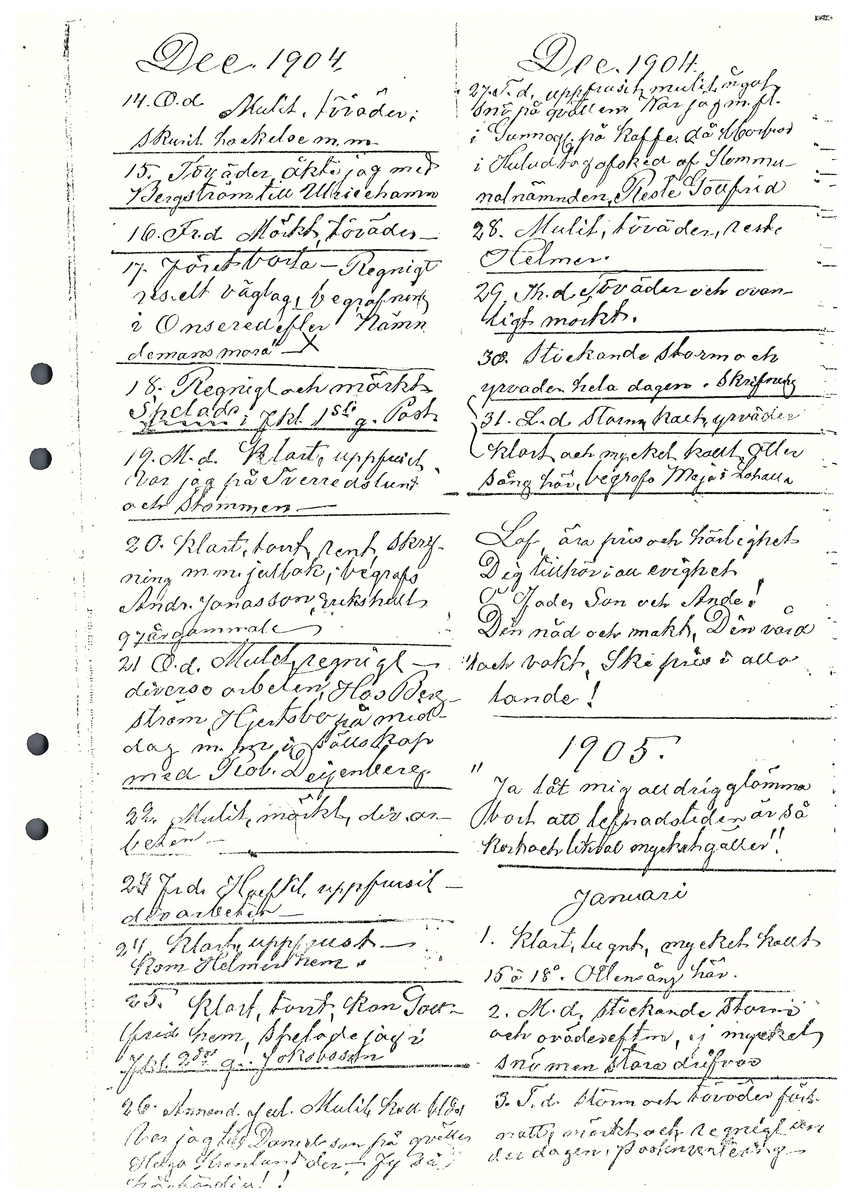 Dec. 1904.
14. O.d. Mulit, töväder;
skurit hackelse m.m.
15. Töväder, åkte jag med
Bergström till Ulricehamn
16. Fr.d Mörkt, töväder —
17. Föret borta — Regnigt
uselt väglag, begrafning
i Onsered efter "Nämn
demans mora" — X
18. Regnigt och mörkt
Spelade i Fkl. 1sta g. Past
19. M.d. Klart, uppfrusit
Var jag på Sverredslunt
och Stommen —
20. Klart, torrt, rent, skrif-
ning m.m. julbak; begrofs
Andr. Jonasson, Erikshult
97 år gammal
21 O.d. Mulet, regnigt —
diverse arbeten, Hos Berg-
ström Hjertsbo på mid-
dag m.m. i sällskap
med Rob. Deijenberg.
22. Mulit, mörkt, div. ar-
beten —
23 Frd. uppfrusit —
div arbeten —
24. Klart, uppfrust —
Kom Helmer hem.
25. Klart, torrt, kom Gott-
frid hem, spelade jag i
Fkl. 2dra g. Jakobsson
26. Annand. Jul. Mulit,
Var jag till Danielsson på qvällen
Helga Kronlund der —
Dec. 1904.
27. T.d. uppfrusit, mulit, något
snö på qvällen. Var jag m.fl.
i Gunnag. på kaffe, då Morbror
i Hulu tog afsked af Kommu-
nalnämnden, Reste Gottfrid
28. Mulit, töväder, reste
Helmer.
29. Th.d. Töväder och ovan-
ligt mörkt.
30. Stickande storm och
yrväder hela dagen. Skrifning
31. L.d. Storm, kallt, yrväder
klart och mycket kallt, Otte
sång här, begrofs Maja i
Lof, ära pris och härlighet
Dig tillhör i all evighet
O Fader Son och Ande!
Din nåd och makt, Din vård
och vakt, Ske pris i alla
lande!
1905.
"Ja låt mig alldrig glömma
bort att lefnadstiden är så
kort och likväl mycket gäller"!
Januari
1. Klart, lugnt, mycket kallt
15 à 18°. Ottesång här.
2. M.d. stickande storm
och oväder eftm, ej mycket
snö men stora drifvor
3. T.d. Storm och töväder förs.
natt, mörkt och regnigt un
der dagen,